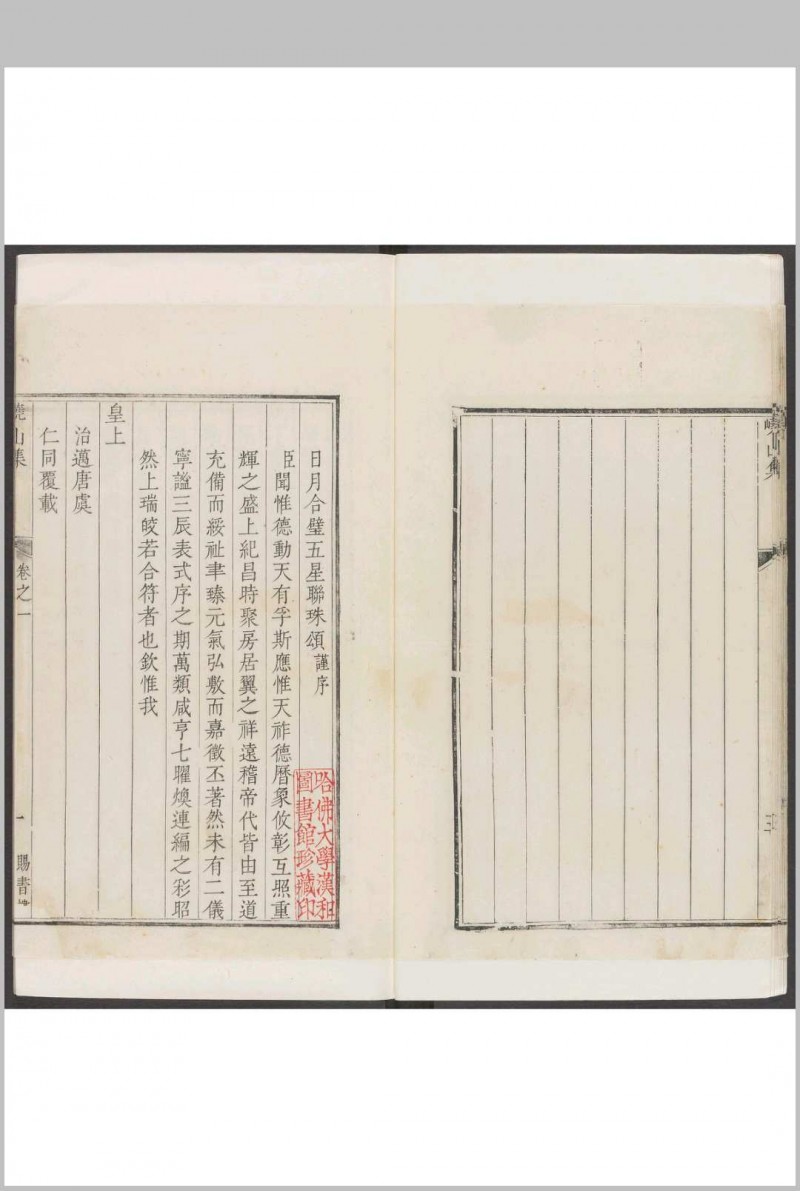 日月合璧五星聯珠頌謹序
臣聞惟德動天有孚斯應惟天祚德曆象攸彰互照重
輝之盛上紀昌時聚房居翼之祥遠稽帝代皆由至道
充備而綏祉聿臻元氣弘敷而嘉徵丕著然未有二儀
寧謐三辰表式序之期萬類咸亨七曜煥連編之彩昭
然上瑞皎若合符者也欽惟我
皇上
治邁唐虞
仁同覆載
山集
卷之一
一
賜書
哈佛大學漢和
圖書館珍藏印
山集